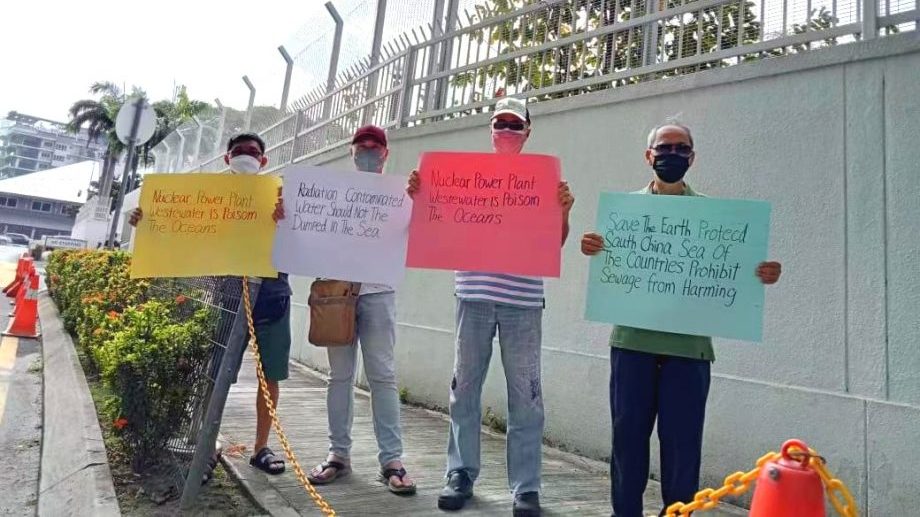 Nuclear Power Plant
Westewater Is Poisom
The Oceans
Radiation Contaminated
Water Should Not The
Dumped In The Sea
Nuclear Power Plant
Westewater Is Poisom
The Oceans
Save The Earth Protecd
Sauth China Sea Of
The Countries Prohibit
Sewage from Harming